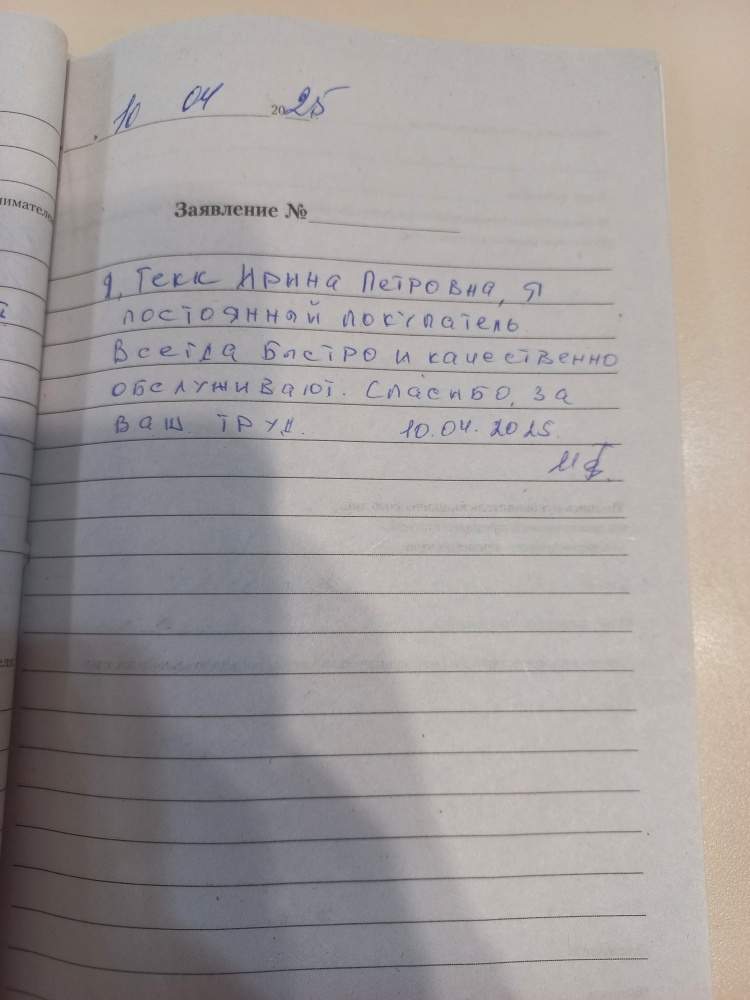 10 04 2025
нимателе
Заявление №
Я, Гекк Ирина Петровна, я
постоянный покупатель
Всегда быстро и качественно
обслуживают. Спасибо, за
ваш труд. 10.04.2025